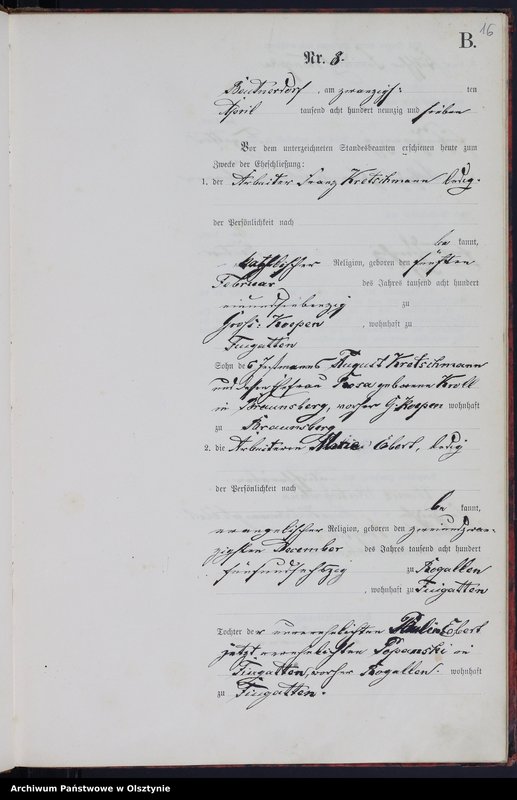 16
B.
Nr. 8.
am zwanzigs: ten
April tausend acht hundert neunzig und sieben
Vor dem unterzeichneten Standesbeamten erschienen heute zum
Zwecke der Eheschließung:
1. der Arbeiter Franz Kretschmann ledig.
der Persönlichkeit nach
be kannt,
katholischer Religion, geboren den fünften
Februar des Jahres tausend acht hundert
einundsiebenzig zu
Groß: Koepen, wohnhaft zu
Fingatten
Sohn des August Kretschmann
und dessen Ehefrau Rosa geborene Kroll
in Braunsberg, vorher G. Koepen wohnhaft
zu Braunsberg
2. die Arbeiterin Maria Ebert, ledig
der Persönlichkeit nach
be kannt,
evangelischer Religion, geboren den zweiundzwan-
zigsten December des Jahres tausend acht hundert
fünfundsechszig zu Rogallen
, wohnhaft zu Fingatten
Tochter der unverehelichten Ebert
jetzt verehelichten Popanski in
Fingatten, vorher Rogallen. wohnhaft
zu Fingatten.
Archiwum Państwowe w Olsztynie